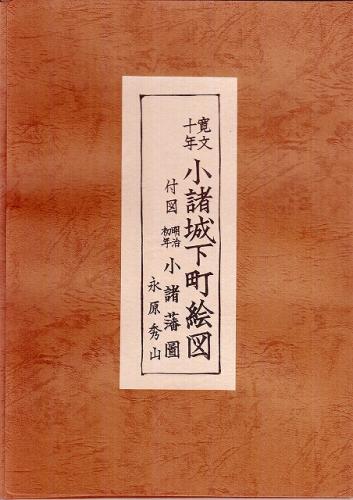 寛文十年 小諸城下町絵図
付図 明治初年 小諸藩圖
永原秀山